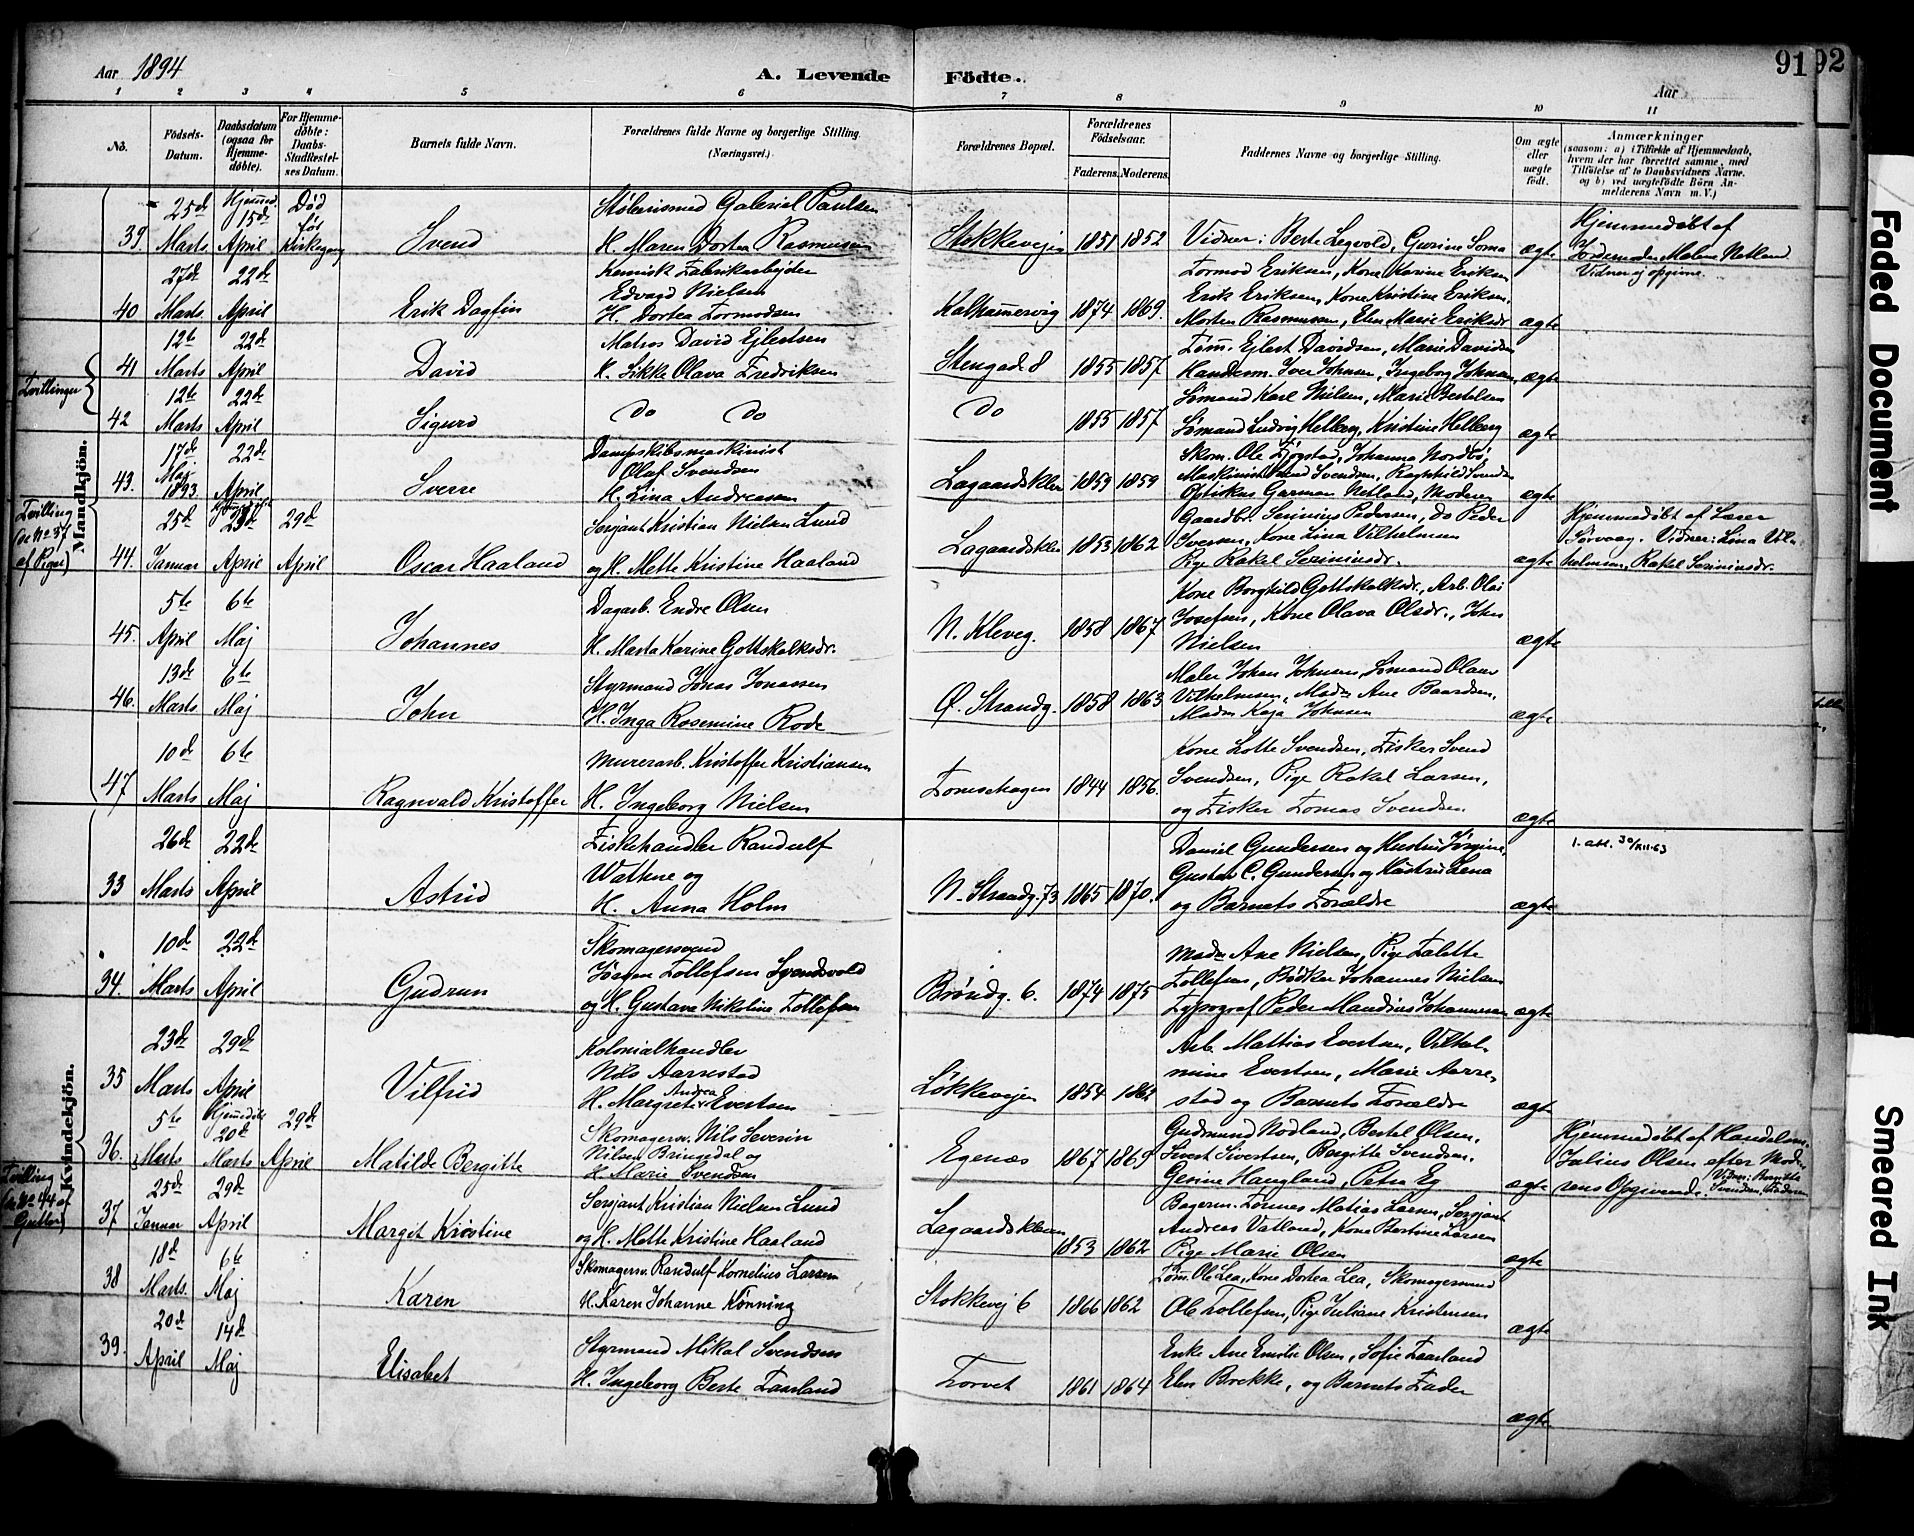 Aar 1894
A. Levende Födte.
Aar
91
92
1 2 3 4 5 6 7 8 9 10 11
No.
Födsels-Datum.
Daabsdatum (ogsaa for Hjemmedøbte).
For Hjemmedøbte: Daabs-Stadfæstelses Datum.
Barnets fulde Navn.
Forældrenes fulde Navne og borgerlige Stilling. (Næringsvei.)
Forældrenes Bopæl.
Forældrenes Födselsaar.
Faderens. Moderens.
Faddernes Navne og borgerlige Stilling.
Om ægte eller uægte født.
Anmærkninger
(saasom: a) i Tilfælde af Hjemmedaab, hvem der har forrettet samme, med Tilføielse af to Daabsvidners Navne. og b) ved uægtefödte Börn Anmelderens Navn m. V.)
Mandkjön.
39. 25de Marts
Hjemmed. 15de April
Død før Kirkegang
Svend
Støberismed Gabriel Paulsen
H. Maren Dortea Rasmussen
Stokkevejen 1851 1852
Vidner: Berte Legvold, Gurine Soma
ægte
Hjemmedøbt af
Jordemoder Malene Netland
Vidner ej opgivne.
40 27de Marts 22de April
Erik Dagfin
kemisk Fabrikarbejder
Edvard Nielsen
H. Dortea Tormodsen
Kalhammervig 1874. 1869.
Tormod Eriksen, Kone Karine Eriksen
Erik Eriksen, Kone Kristine Eriksen,
Morten Rasmussen, Elen Marie Eriksdr
ægte
Tvillinger
41 12te Marts 22de April
David
Matros David Ejlertsen
H. Sikke Olava Fredriksen
Stengade 8 1855 1857
Tøm. Ejlert Davidsen, Marie Davidsen
Handelsm. Iver Johnsen, Ingeborg Johnsen,
ægte
42 12te Marts 22de April
Sigurd
Do Do
Do 1855 1857
Sømand Karl Nielsen, Marie Bertelsen
Sømand Ludvig Helberg, Kristine Helberg
ægte
43. 17de Maj 1893 22de April
Sverre
Dampskibsmaskinist
Oluf Svendsen
H. Lina Andreasen
Lagaardsklev 1859 1859
Skom. Ole Fjogstad, Johanna Nordbö,
Maskinist Svend Svendsen, Ragnhild Svendsen
Optiskus Garman Netland, Moderen
ægte
Tvilling (se No 37 af Piger)
44. 25de Januar 23de April 29de April
Oscar Haaland
Sersjant Kristian Nielsen Lund
og H. Mette Kristine Haaland
Lagaardsklev 1853 1862
Gaardbr. Serinius Pedersen, do Peder
Iversen, Kone Lina Vilhelmsen
Pige Rakel Serininsdr.
ægte
Hjemmedøbt af Læser
Sørvaag. Vidner: Lina Vil-
helmsen, Rakel Serininsdr.
45. 5te April 6te Maj
Johannes
Dagarb. Endre Olsen
H. Marta Karine Gottskalksdr.
N. Kleveg. 1858 1867
Kone Borghild Gottskalksdr., Arb. Olai
Josefsen, Kone Olava Olsdr., John
Nielsen
ægte
46. 13de Marts 6te Maj
John
Styrmand Jonas Jonassen
H. Inga Rosemine Rode
Ø. Strandg. 1858 1863
Maler Johan Johnsen, Sømand Olaus
Vilhelmsen, Madm Ane Baardsen,
Madm Kaja Johnsen
ægte
47 10de Marts 6te Maj
Ragnvald Kristoffer
Murerarb. Kristoffer Kristiansen
H. Ingeborg Nielsen
Tomsehagen 1844 1856.
Kone Lotte Svendsen, Fisker Svend
Svendsen, Pige Rakel Larsen,
og Fisker Tomas Svendsen.
ægte
Kvindekjön.
33 26de Marts 22de April
Astrid
Fiskehandler Randulf
Wathne og
H. Anna Holm
N. Strandg. 73 1865 1870.
Daniel Gundersen og Hustru Jørgine,
Gustav C. Gundersen og Hustru Lena
og Barnets Forældre
ægte
1. att. 30/XII-63
34. 10de Marts 22de April
Gudrun
Skomagersvend
Jörgen Tollefsen Svendsvold
og H. Gustava Nikoline Tollefsen
Bröndg. 6. 1874 1875
Madm Ane Nielsen, Pige Talette
Tollefsen, Bødker Johannes Nielsen
Typograf Peder Mandius Johannesen
ægte
35 23de Marts 29de April
Vilfrid
Kolonialhandler
Nils Aarrestad
H. Margrete Andrea Evertsen
Løkkevejen 1854 1862
Arb. Mattias Evertsen, Vilhel-
mine Evertsen, Marie Aarre-
stad og Barnets Forældre
ægte
36. 5te Marts
Hjemmedøbt 20de Marts 29de April
Matilde Bergitte
Skomagersv. Nils Severin
Nilsen Bringedal og
H. Marie Svendsen
Egenæs 1867 1869
Gudmund Nodland, Bertel Olsen,
Sivert Sivertsen, Bergitte Svendsen,
Gerine Haugland, Petra Eg
ægte
Hjemmedøbt af Handelsm.
Julius Olsen efter Mode-
rens Opgivende. Vidner: Bergitte Svendsen, Faderen
Tvilling (se No 44 af Gutter)
37 25de Januar 29de April
Margit Kristine
Sersjant Kristian Nielsen Lund
og H. Mette Kristine Haaland
Lagaardskleven 1853 1862
Bagerm. Tönnes Matias Larsen, Sersjant
Andreas Vatland, Kone Bertine Larsen
Pige Marie Olsen
ægte
38 18de Marts. 6te Maj
Karen
Skomagersv. Randulf Kornelius Larsen
H. Karen Johanne Kønning
Stokkevej 6 1866 1862
Tøm. Ole Lea, Kone Dortea Lea, Skomagersvend
Ole Tollefsen, Pige Juliane Kristensen
ægte
39. 20de April 14de Maj
Elisabet
Styrmand Mikal Svendsen
H. Ingeborg Berte Faarland
Torvet 1861 1864
Enke Ane Emilie Olsen, Sofie Faarland
Elen Brekke, og Barnets Fader
ægte
Faded Document
Smeared Ink